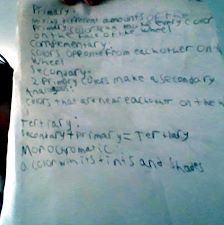 Primary:
Mixing different amounts of the
Primary color can make every color
on the wheel
Complementary:
colors opposite from each other on
wheel
Secondary:
2 Primary colors make a secondary
Analogous:
Colors that are near each other on the
Tertiary:
secondary + primary = Tertiary
Monochromatic:
a color with its tints and shades